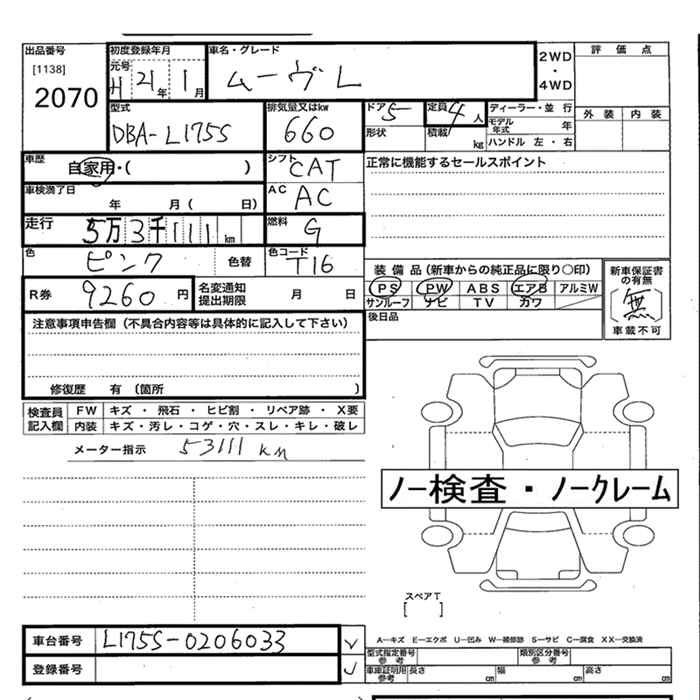 出品番号 初度登録年月 車名・グレード 2WD ・ 4WD 評価点
[1138] 元号 H 21年 1月 ムーヴ L
2070
外装 内装
型式 排気量又はkw ドア 5 定員 4人 ディーラー・並行
DBA-L175S 660 形状 積載 kg モデル年式 年
ハンドル 左・右
車歴 自家用・( ) シフト CAT 正常に機能するセールスポイント
車検満了日 年 月( 日) AC AC
走行 5万3千111km 燃料 G
色 ピンク 色替 色コード T16
装備品(新車からの純正品に限り○印) 新車保証書の有無
R券 9260円 名変通知提出期限 月 日 PS PW ABS エアB アルミW [無]
サンルーフ ナビ TV カワ 車載不可
注意事項申告欄(不具合内容等は具体的に記入して下さい) 後日品
修復歴 有(箇所 )
検査員記入欄 FW キズ・飛石・ヒビ割・リペア跡・X要
内装 キズ・汚レ・コゲ・穴・スレ・キレ・破レ
メーター指示 53111 km
ノー検査・ノークレーム
スペアT
[ ]
車台番号 L175S-0206033
A―キズ E―エクボ U―凹み W―補修跡 S―サビ C―腐食 XX―交換済
型式指定番号 参考 類別区分番号 参考
登録番号 車庫証明用 参考 長さ cm 幅 cm 高さ cm